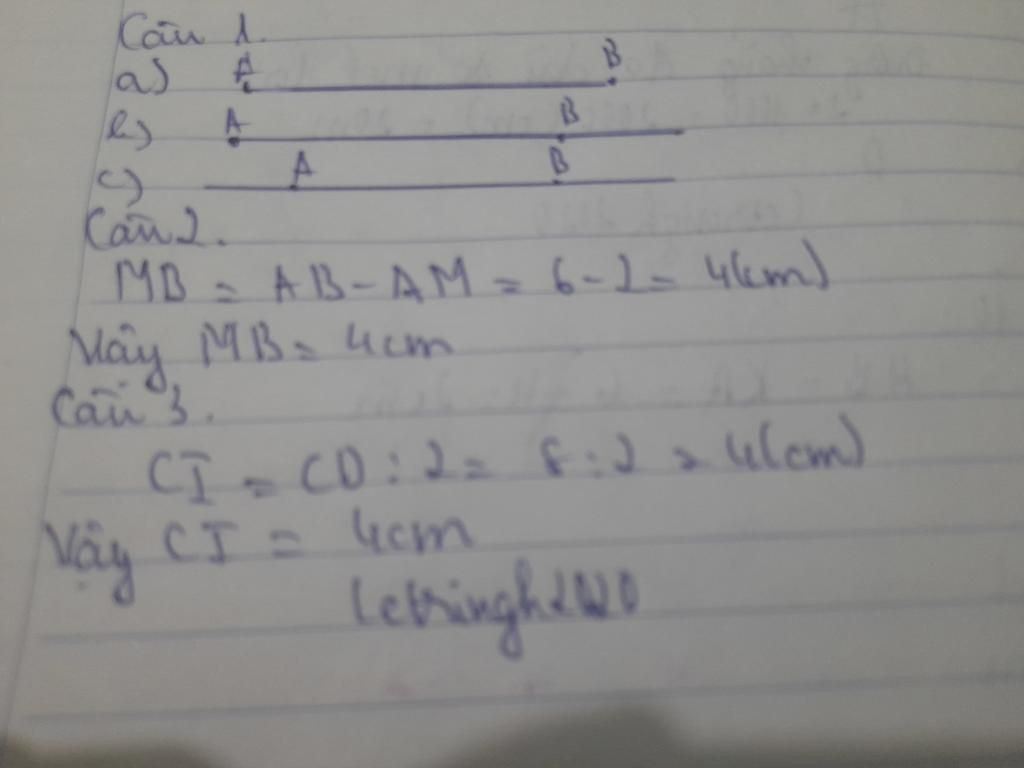 Câu 1.
a) A B
b) A B
c) A B
Câu 2.
MB = AB - AM = 6 - 2 = 4(cm)
Vậy MB = 4cm
Câu 3.
CI = CD : 2 = 8 : 2 = 4(cm)
Vậy CI = 4cm